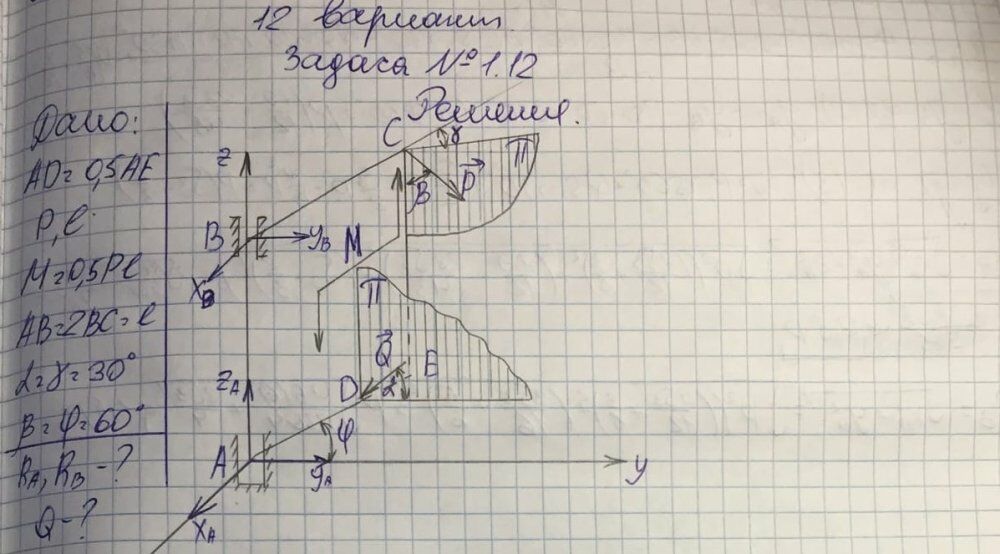 12 вариант.
Задаса №1.12
Решения.
Дано:
AD=0,5AE
P, l
M=0,5Pl
AB=2BC=l
α=γ=30°
β=φ=60°
RA, RB-?
Q-?
C
γ
П
z
β
P
B
yB
M
xB
П
Q
E
zA
D
α
φ
A
yA
y
xA